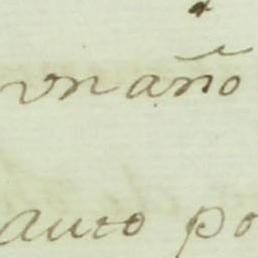 vn año
auto po